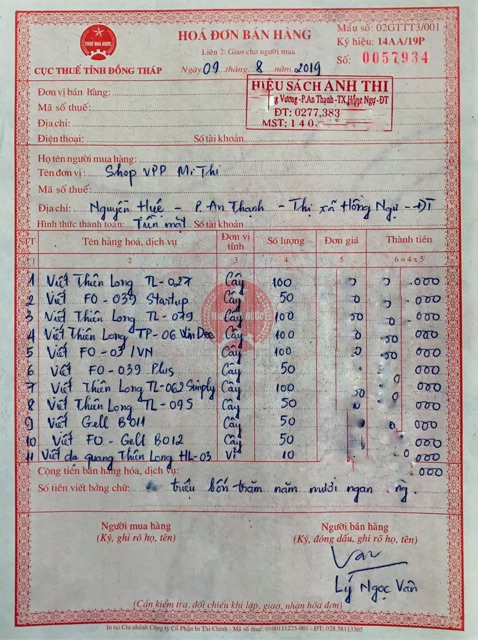 HOÁ ĐƠN BÁN HÀNG
Liên 2: Giao cho người mua
Mẫu số: 02GTTT3/001
Ký hiệu: 14AA/19P
Số: 0057934
CỤC THUẾ TỈNH ĐỒNG THÁP
Ngày 09 tháng 8 năm 2019
Đơn vị bán hàng:
HIỆU SÁCH ANH THI
Vương - P.An Thạnh - TX.Hồng Ngự - ĐT
ĐT: 0277.383
MST: 140
Mã số thuế:
Địa chỉ:
Điện thoại: Số tài khoản:
Họ tên người mua hàng:
Tên đơn vị: Shop VPP Mi Thi
Mã số thuế:
Địa chỉ: Nguyễn Huệ - P. An Thạnh - Thị xã Hồng Ngự - ĐT
Hình thức thanh toán: Tiền mặt Số tài khoản:
STT Tên hàng hoá, dịch vụ Đơn vị tính Số lượng Đơn giá Thành tiền
1 2 3 4 5 6 = 4 x 5
1 Viết Thiên Long TL-027 Cây 100 0 .000
2 Viết FO-039 Startup Cây 50 0 000
3 Viết Thiên Long TL-079 Cây 100 00 000
4 Viết Thiên Long TP-06 Cây 100 000
5 Viết FO-03/VN Cây 100 000
6 Viết FO-039 Plus Cây 50 000
7 Viết Thiên Long TL-062 Simply Cây 100 000
8 Viết Thiên Long TL-095 Cây 50 000
9 Viết Gell B011 Cây 50 000
10 Viết FO-Gell B012 Cây 50 000
11 Viết dạ quang Thiên Long HL-03 Vỉ 10 000
Cộng tiền bán hàng hóa, dịch vụ: .000
Số tiền viết bằng chữ: triệu bốn trăm năm mươi ngàn
Người mua hàng Người bán hàng
(Ký, ghi rõ họ, tên) (Ký, đóng dấu, ghi rõ họ, tên)
Vân
Lý Ngọc Vân
(Cần kiểm tra, đối chiếu khi lập, giao, nhận hóa đơn)
In tại Chi nhánh Công ty Cổ Phần In Tài Chính - Mã số thuế: 0100111225-001 - ĐT: 028.38113305